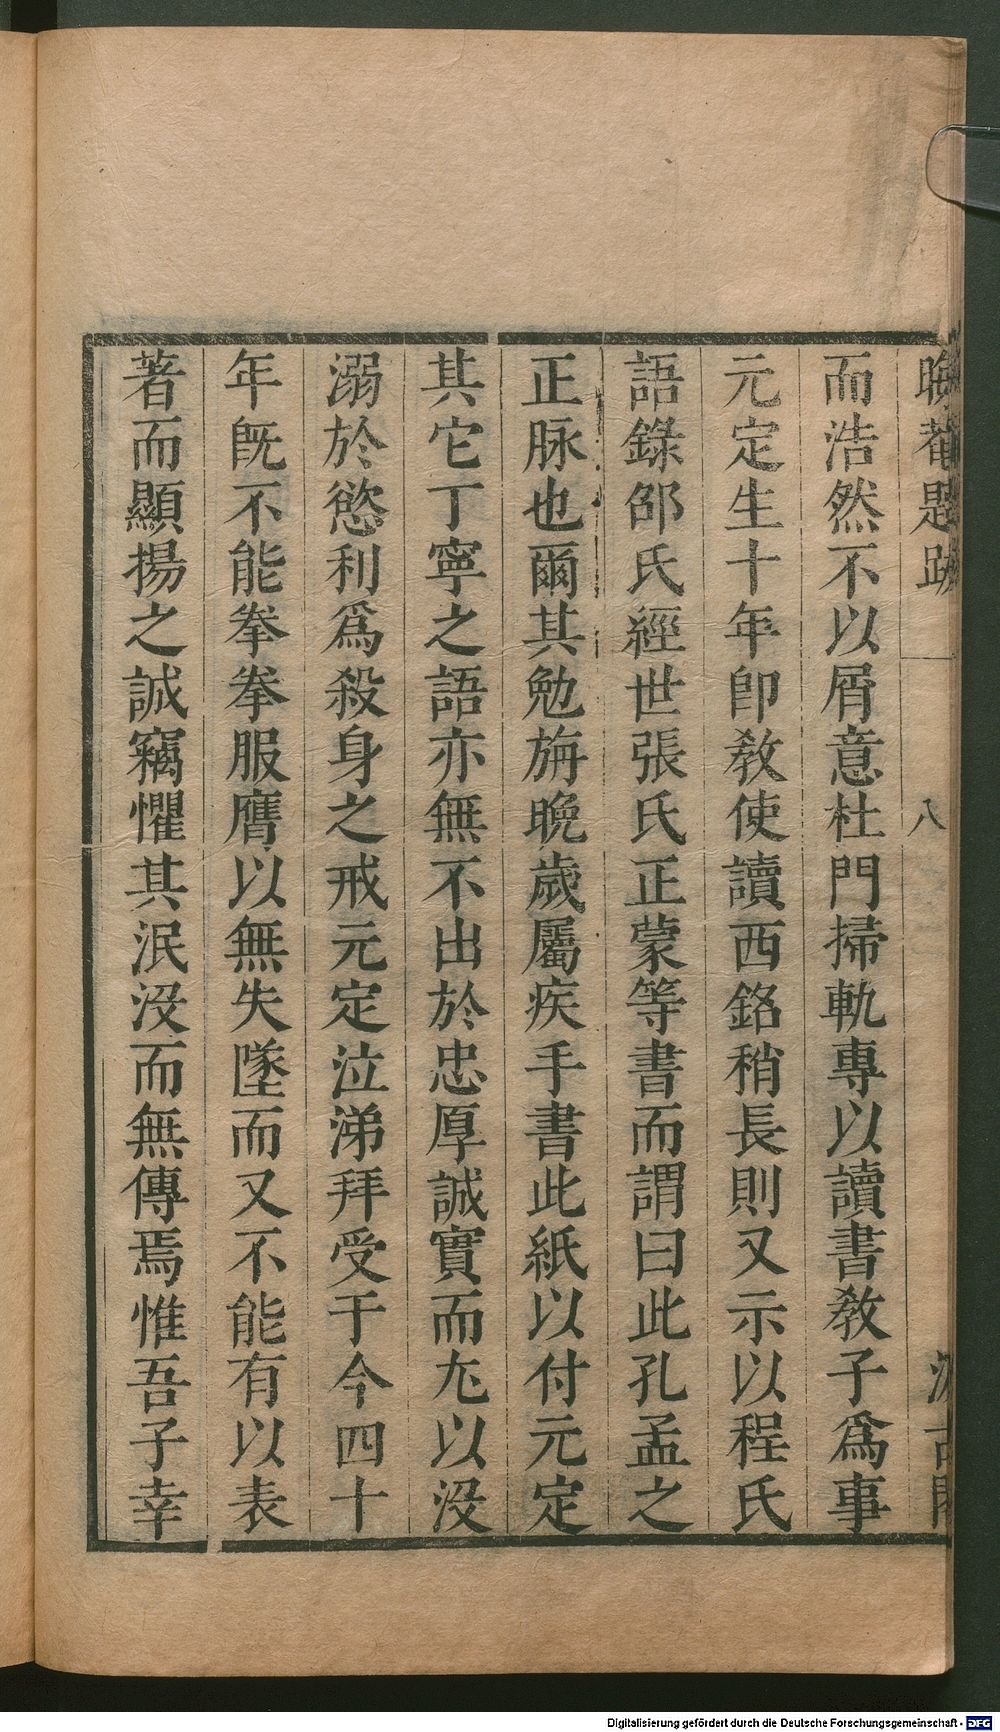 晦菴題跋 八 汲古閣
而浩然不以屑意杜門掃軌專以讀書教子爲事
元定生十年卽敎使讀西銘稍長則又示以程氏
語錄邵氏經世張氏正蒙等書而謂曰此孔孟之
正脉也爾其勉旃晚歲屬疾手書此紙以付元定
其它丁寧之語亦無不出於忠厚誠實而尤以没
溺於慾利爲殺身之戒元定泣涕拜受于今四十
年旣不能拳拳服膺以無失墜而又不能有以表
著而顯揚之誠竊懼其泯没而無傳焉惟吾子幸
Digitalisierung gefördert durch die Deutsche Forschungsgemeinschaft - DFG